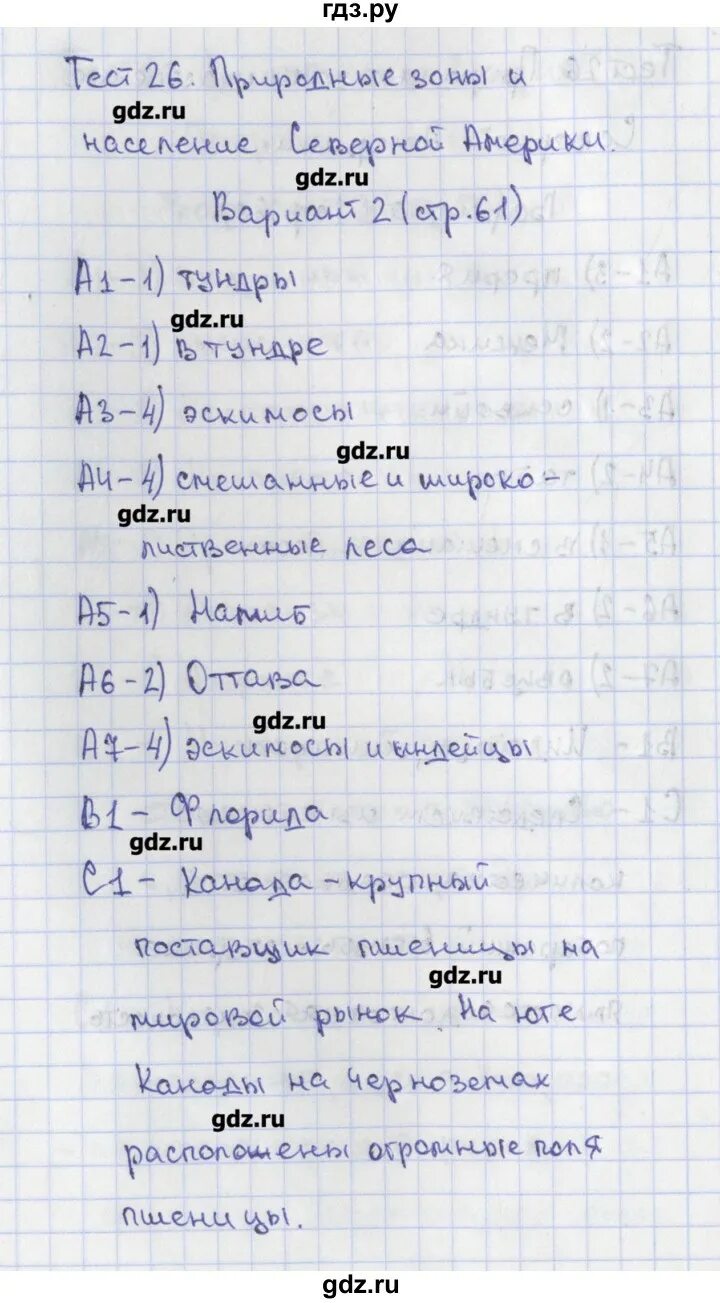 гдз.ру
Тест 26. Природные зоны и
gdz.ru
население Северной Америки.
gdz.ru
Вариант 2 (стр. 61)
А1-1) тундры
gdz.ru
А2-1) в тундре
А3-4) эскимосы
gdz.ru
А4-4) смешанные и широко-
gdz.ru
лиственные леса
А5-1) Намиб
А6-2) Оттава
gdz.ru
А7-4) эскимосы и индейцы
В1- Флорида
gdz.ru
С1- Канада - крупный
поставщик пшеницы на
gdz.ru
мировой рынок. На юге
Канады на черноземах
gdz.ru
расположены огромные поля
пшеницы.
gdz.ru